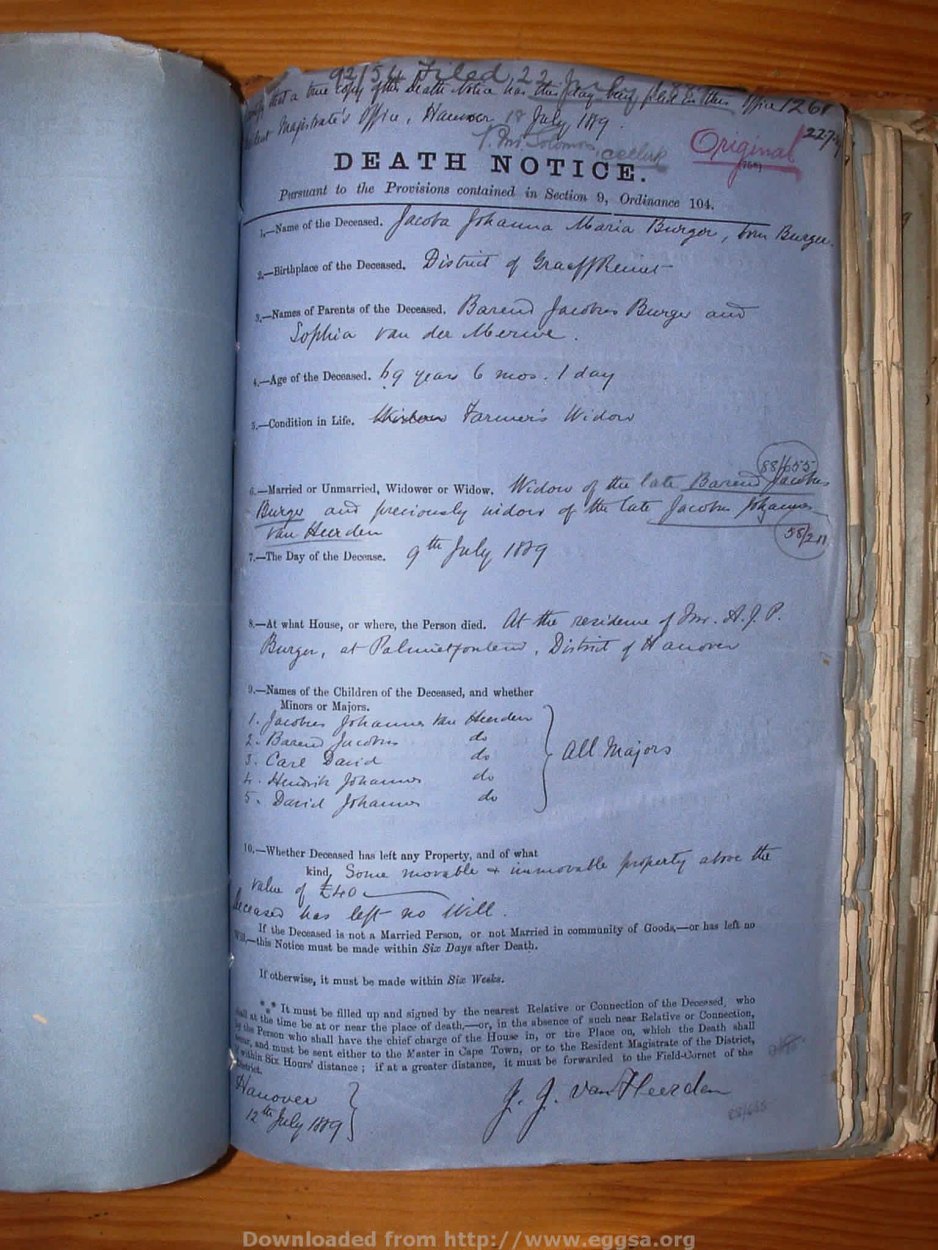 92/54 Filed 22
that a true copy of this Death Notice has this day been filed in this Office 1261
Magistrate's Office, Hanover 18 July 1889.
Original
DEATH NOTICE.
Pursuant to the Provisions contained in Section 9, Ordinance 104.
1,—Name of the Deceased. Jacoba Johanna Maria Burger, born Burger
2,—Birthplace of the Deceased. District of Graaff Reinet
3,—Names of Parents of the Deceased. Barend Jacobus Burger and
Sophia van der Merwe.
4,—Age of the Deceased. 69 years 6 mos. 1 day
5,—Condition in Life. Farmer's Widow
88/655
6,—Married or Unmarried, Widower or Widow. Widow of the late Barend Jacobus
Burger and previously widow of the late Jacobus Johannes
van Heerden
58/211
7.—The Day of the Decease. 9th July 1889
8.—At what House, or where, the Person died. At the residence of Mr. A. J. P.
Burger, at Palmietfontein, District of Hanover
9.—Names of the Children of the Deceased, and whether
Minors or Majors.
1. Jacobus Johannes van Heerden
2. Barend Jacobus do
3. Carl David do
4. Hendrik Johannes do
5. David Johannes do
All Majors
10.—Whether Deceased has left any Property, and of what
kind, Some movable & immovable property above the
value of £40
deceased has left no Will.
If the Deceased is not a Married Person, or not Married in community of Goods,—or has left no
Will,—this Notice must be made within Six Days after Death.
If otherwise, it must be made within Six Weeks.
*** It must be filled up and signed by the nearest Relative or Connection of the Deceased, who
shall at the time be at or near the place of death,—or, in the absence of such near Relative or Connection,
by the Person who shall have the chief charge of the House in, or the Place on, which the Death shall
occur, and must be sent either to the Master in Cape Town, or to the Resident Magistrate of the District,
if within Six Hours' distance; if at a greater distance, it must be forwarded to the Field-Cornet of the
District.
Hanover
12th July 1889
J. J. van Heerden
88/655
Downloaded from http://www.eggsa.org